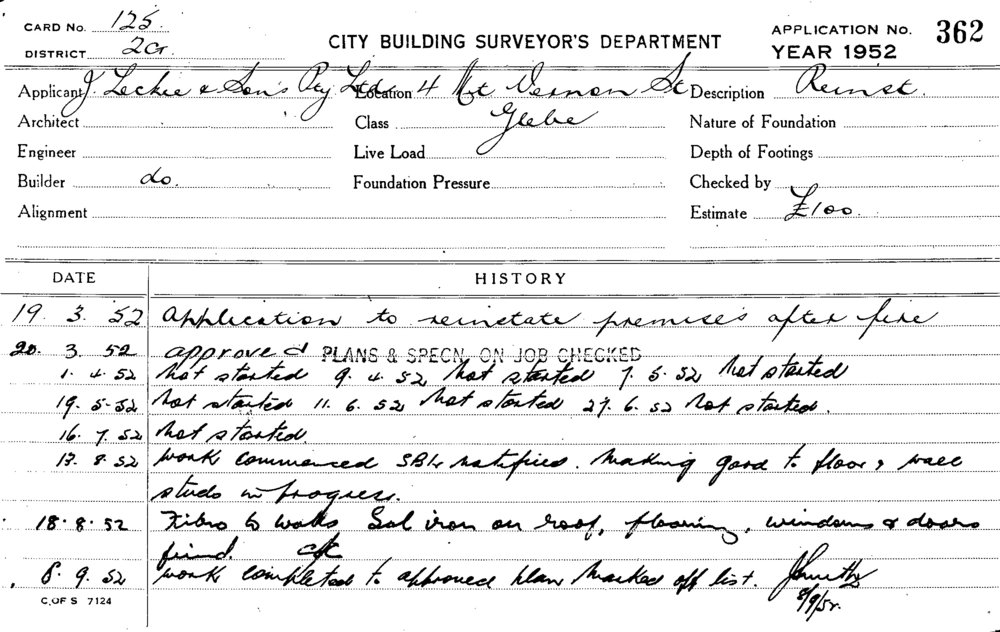 CARD No. 125
DISTRICT 2Gr.
CITY BUILDING SURVEYOR'S DEPARTMENT
APPLICATION No. 362
YEAR 1952
Applicant J. Leckie & Son's Pty Ltd Location 4 Mt Vernon St Description Reinst.
Architect Class Glebe Nature of Foundation
Engineer Live Load Depth of Footings
Builder do. Foundation Pressure Checked by
Alignment Estimate £100.
DATE HISTORY
19. 3. 52 Application to reinstate premises after fire
20. 3. 52 approved PLANS & SPECN. ON JOB CHECKED
1. 4. 52 Not started 9. 4. 52 Not started 7. 5. 52 Not started
19. 5. 52 Not started 11. 6. 52 Not started 27. 6. 52 Not started.
16. 7. 52 Not started.
13. 8. 52 Work commenced notified. Making good to floor, wall
studs in progress.
18. 8. 52 Fibro to walls Gal iron on roof, flooring, windows & doors
fixed.
8. 9. 52 Work completed to approved plan Marked off list.
8/9/52.
C. OF S 7124